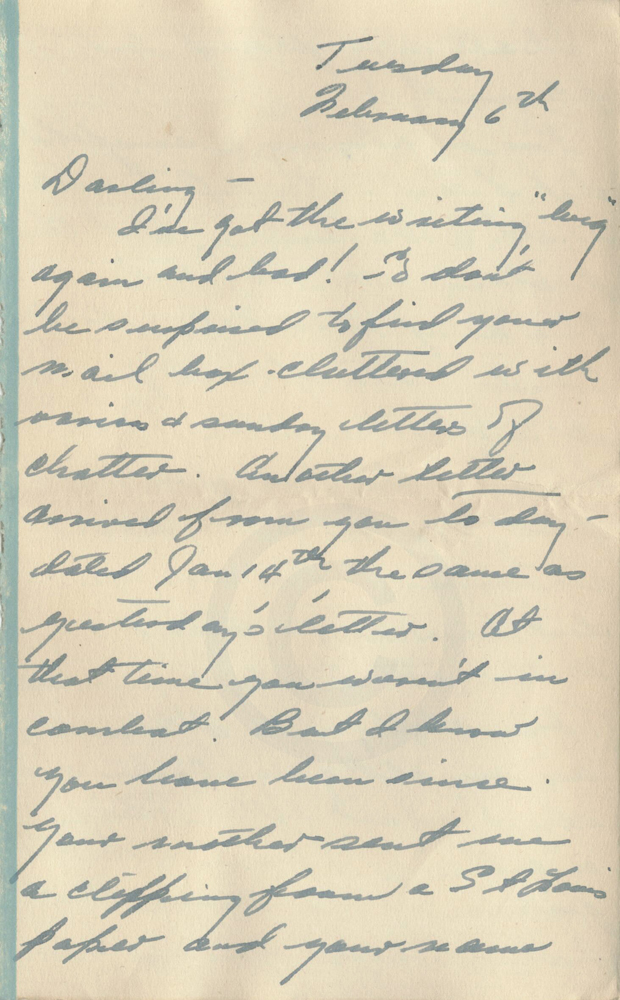 Tuesday
February 6th
Darling –
I'm got the writing "bug"
again and bad! So don't
be surprised to find your
mail box cluttered with
various & sunday letters of
chatter. Another letter
arrived from you to day –
dated Jan 14th the same as
yesterday's letter. At
that time you weren't in
combat. But I know
you have been since.
Your mother sent me
a clipping from a St Louis
paper and your name